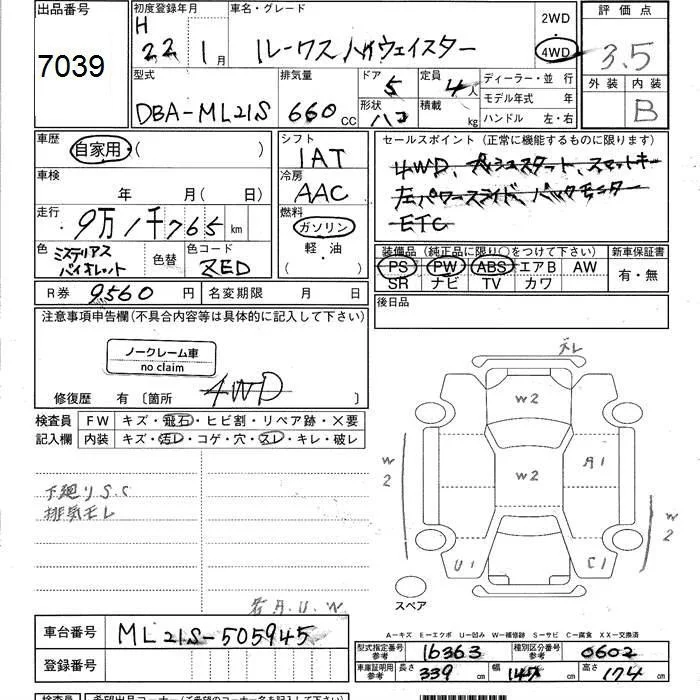 出品番号 7039
初度登録年月 H 22 1月
車名・グレード ルークス ハイウェイスター
2WD 4WD
評価点 3.5
外装 内装 B
型式 DBA-ML21S
排気量 660 CC
ドア 5 形状 ハコ
定員 4人 積載 kg
ディーラー・並 行
モデル年式 年
ハンドル 左・右
車歴 自家用・( )
シフト IAT
セールスポイント (正常に機能するものに限ります)
4WD、プッシュスタート、スマートキー
左パワースライド、バックモニター
ETC
車検 年 月( 日)
冷房 AAC
走行 9万1千765 km
燃料 ガソリン 軽・油 ( )
色 ミステリアスバイオレット 色替 色コード ZED
装備品 (純正品に限り○をつけて下さい) 新車保証書
PS PW ABS エアB AW 有・無
SR ナビ TV カワ
R券 9560 円 名変期限 月 日
後日品
注意事項申告欄(不具合内容等は具体的に記入して下さい)
ノークレーム車
no claim
修復歴 有 〔箇所 4WD 〕
検査員 FW キズ・飛石・ヒビ割・リペア跡・×要
記入欄 内装 キズ・汚レ・コゲ・穴・スレ・キレ・破レ
ズレ
W2
W2 W2 A1
W2
U1 C1
下廻りS.C
排気モレ
スペア
A-キズ E-エクボ U-凹み W-補修跡 S-サビ C-腐食 XX-交換済
車台番号 ML21S-505945
型式指定番号 参考 16363 種別区分番号 参考 0602
登録番号
車庫証明用 参考 長さ 339 cm 幅 147 cm 高さ 174 cm